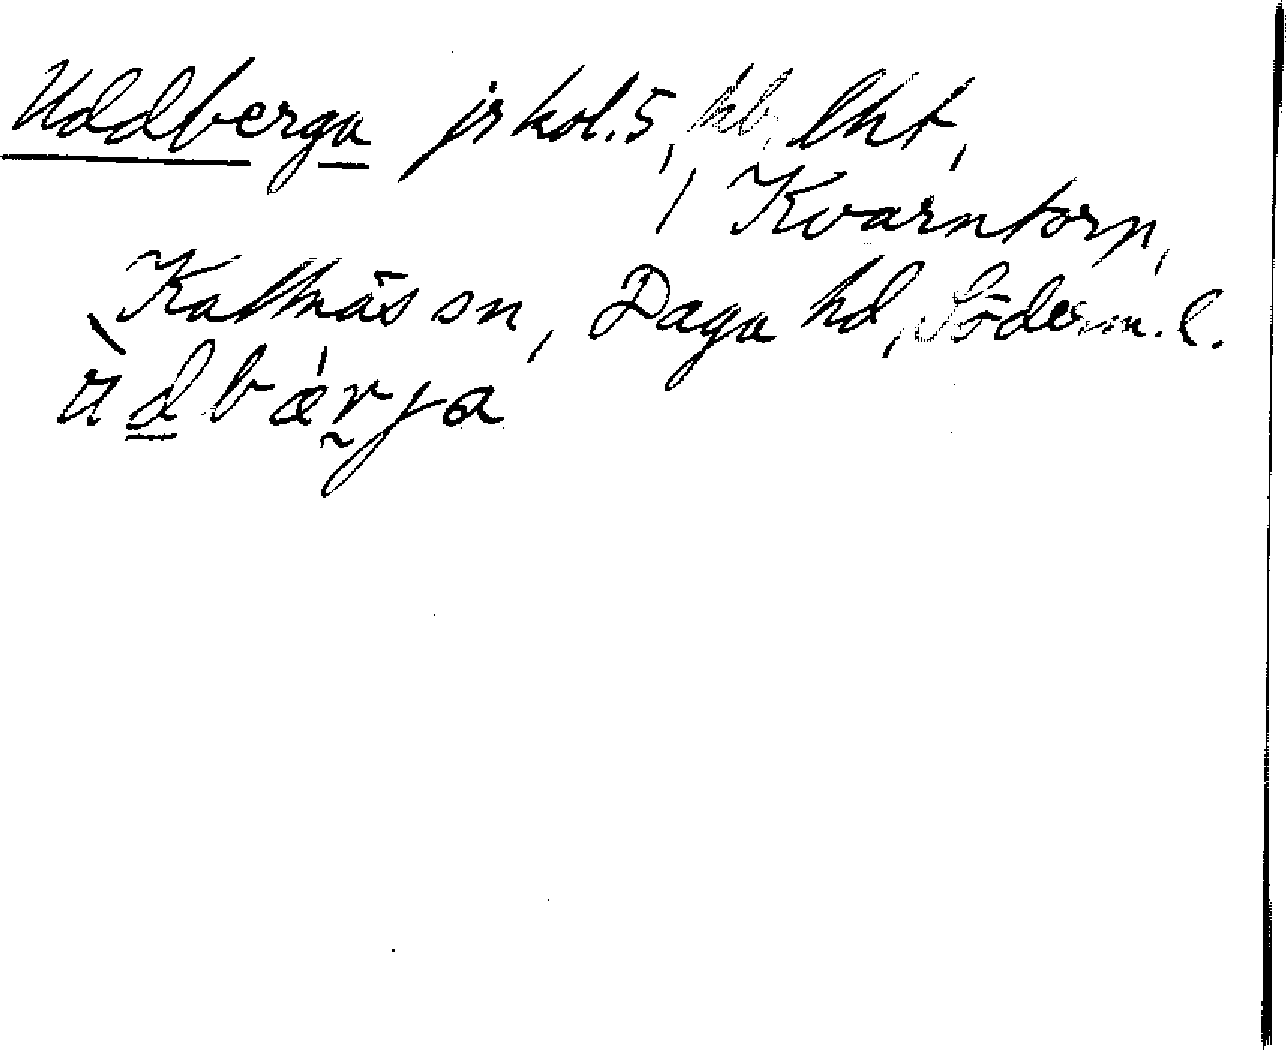 Uddberga jrkol.5, hb. lht,
, Kvarntorp,
Kattnäs sn, Daga hd, Söderm. l.
ùdbærja